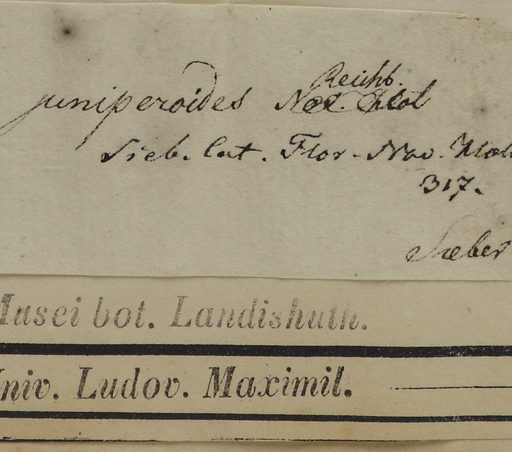 juniperoides Nov. Holl
Reichb.
Sieb. Cat. Flor. Nov. Holl
317.
Sieber
Musei bot. Landishuth.
Univ. Ludov. Maximil.